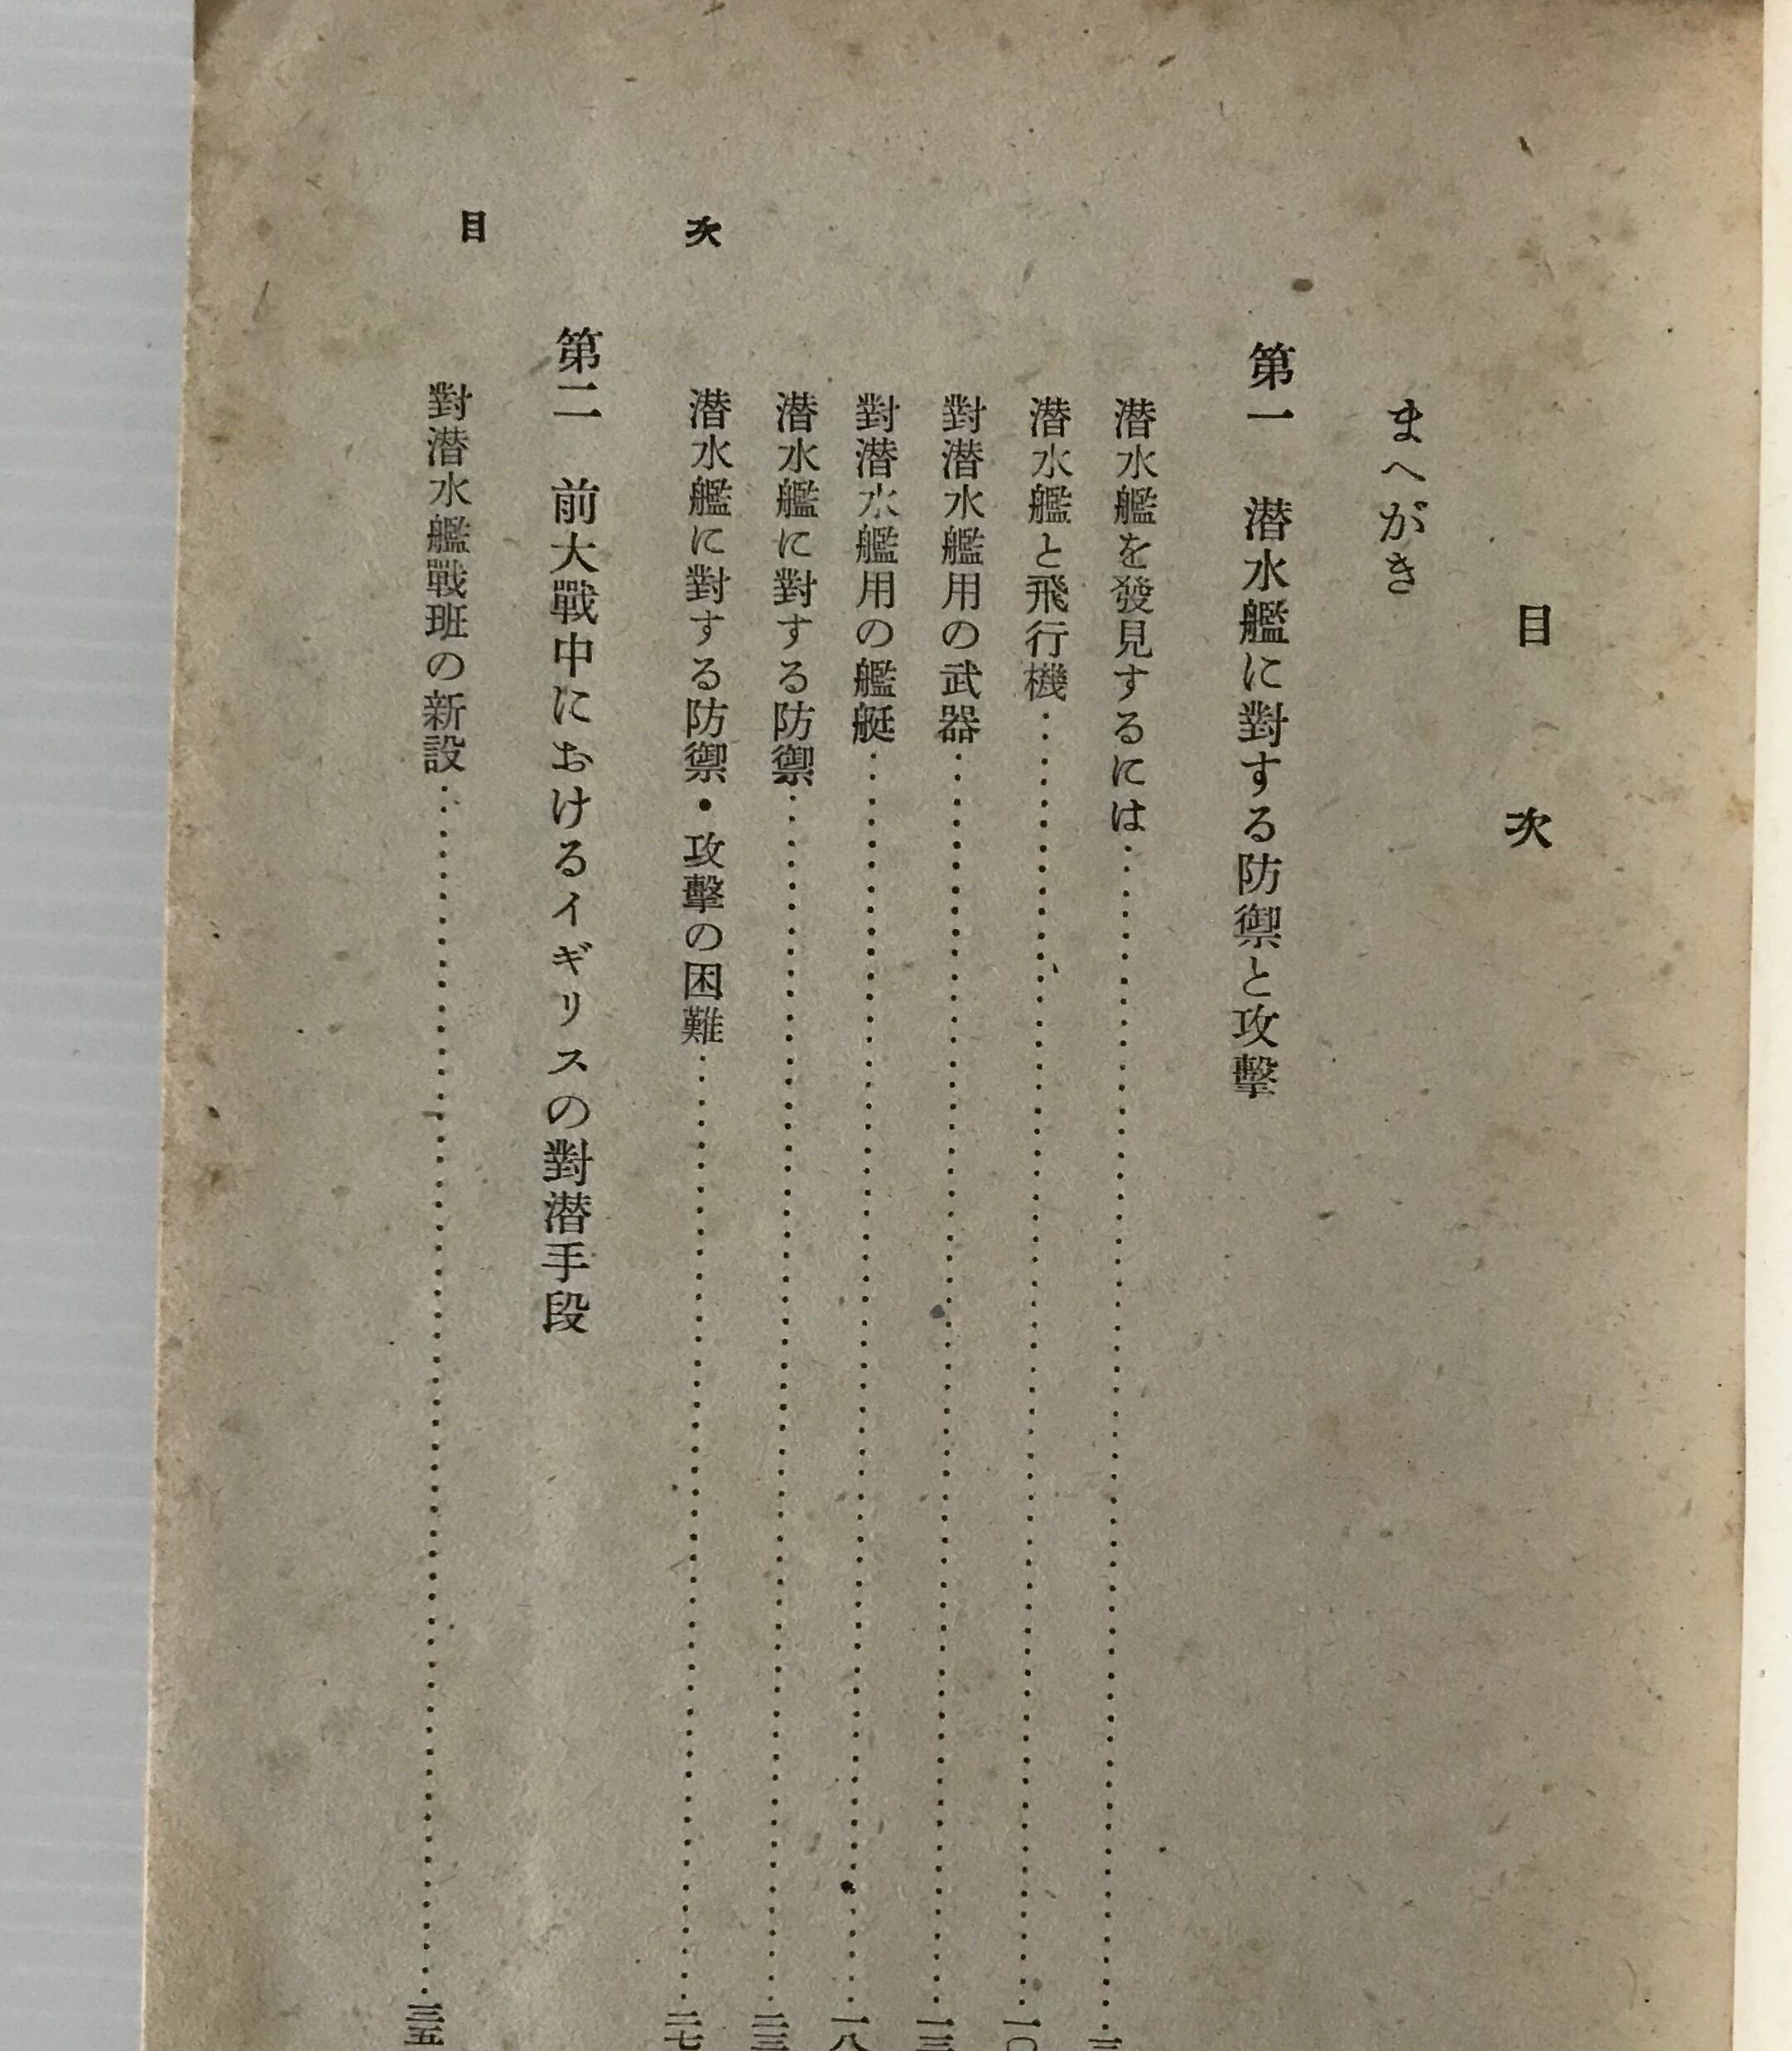 目次
まへがき
第一　潜水艦に對する防禦と攻擊
潜水艦を發見するには
潜水艦と飛行機……一〇
對潜水艦用の武器……一三
對潜水艦用の艦艇……一八
潜水艦に對する防禦……二三
潜水艦に對する防禦・攻擊の困難……二七
第二　前大戰中におけるイギリスの對潜手段
對潜水艦戰班の新設……三五
目次